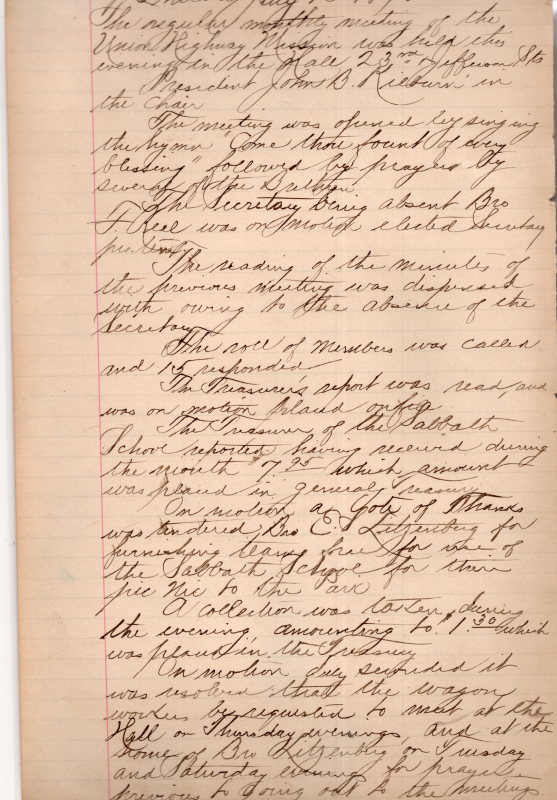 The regular monthly meeting of the
Union Highway Mission was held this
evening in the Hall 23rd & Jefferson Sts
President John B. Kilburn in
the chair
The meeting was opened by singing
the hymn "Come thou fount of every
blessing" followed by prayers by
several of the Brethren
The Secretary being absent Bro
F. Keel was on motion elected Secretary
pro tem
The reading of the minutes of
the previous meeting was dispensed
with owing to the absence of the
Secretary
The roll of members was called
and 15 responded
The Treasurer's report was read, and
was on motion placed on file
The Treasurer of the Sabbath
School reported having received during
the month $7.95 which amount
was placed in general treasury
On motion a Vote of Thanks
was tendered Bro E. Litzenberg for
furnishing teams free for use of
the Sabbath School for there
pic nic to the Park
A collection was taken during
the evening amounting to $1.30 which
was placed in the Treasury
On motion duly seconded it
was resolved that the wagon
workers be requested to meet at the
Hall on Thursday evenings, and at the
home of Bro Litzenberg on Tuesday
and Saturday evening for prayer
previous to going out to the meetings